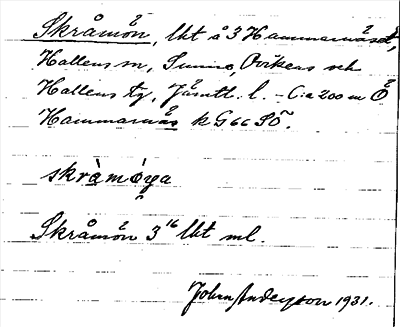 Skråmön, lht å 3 Hammarnäset,
Hallens sn, Sunne, Ovikens och
Hallens tg, Jämtl. l. - C:a 200 m Ö
Hammarnäs k G 66 SÖ.
skråmöya
Skråmön 3¹⁶ lht ml.
John Anderson 1931.